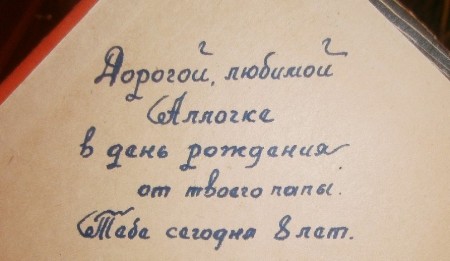 Дорогой, любимой
Аллочке
в день рождения
от твоего папы.
Тебе сегодня 8 лет.